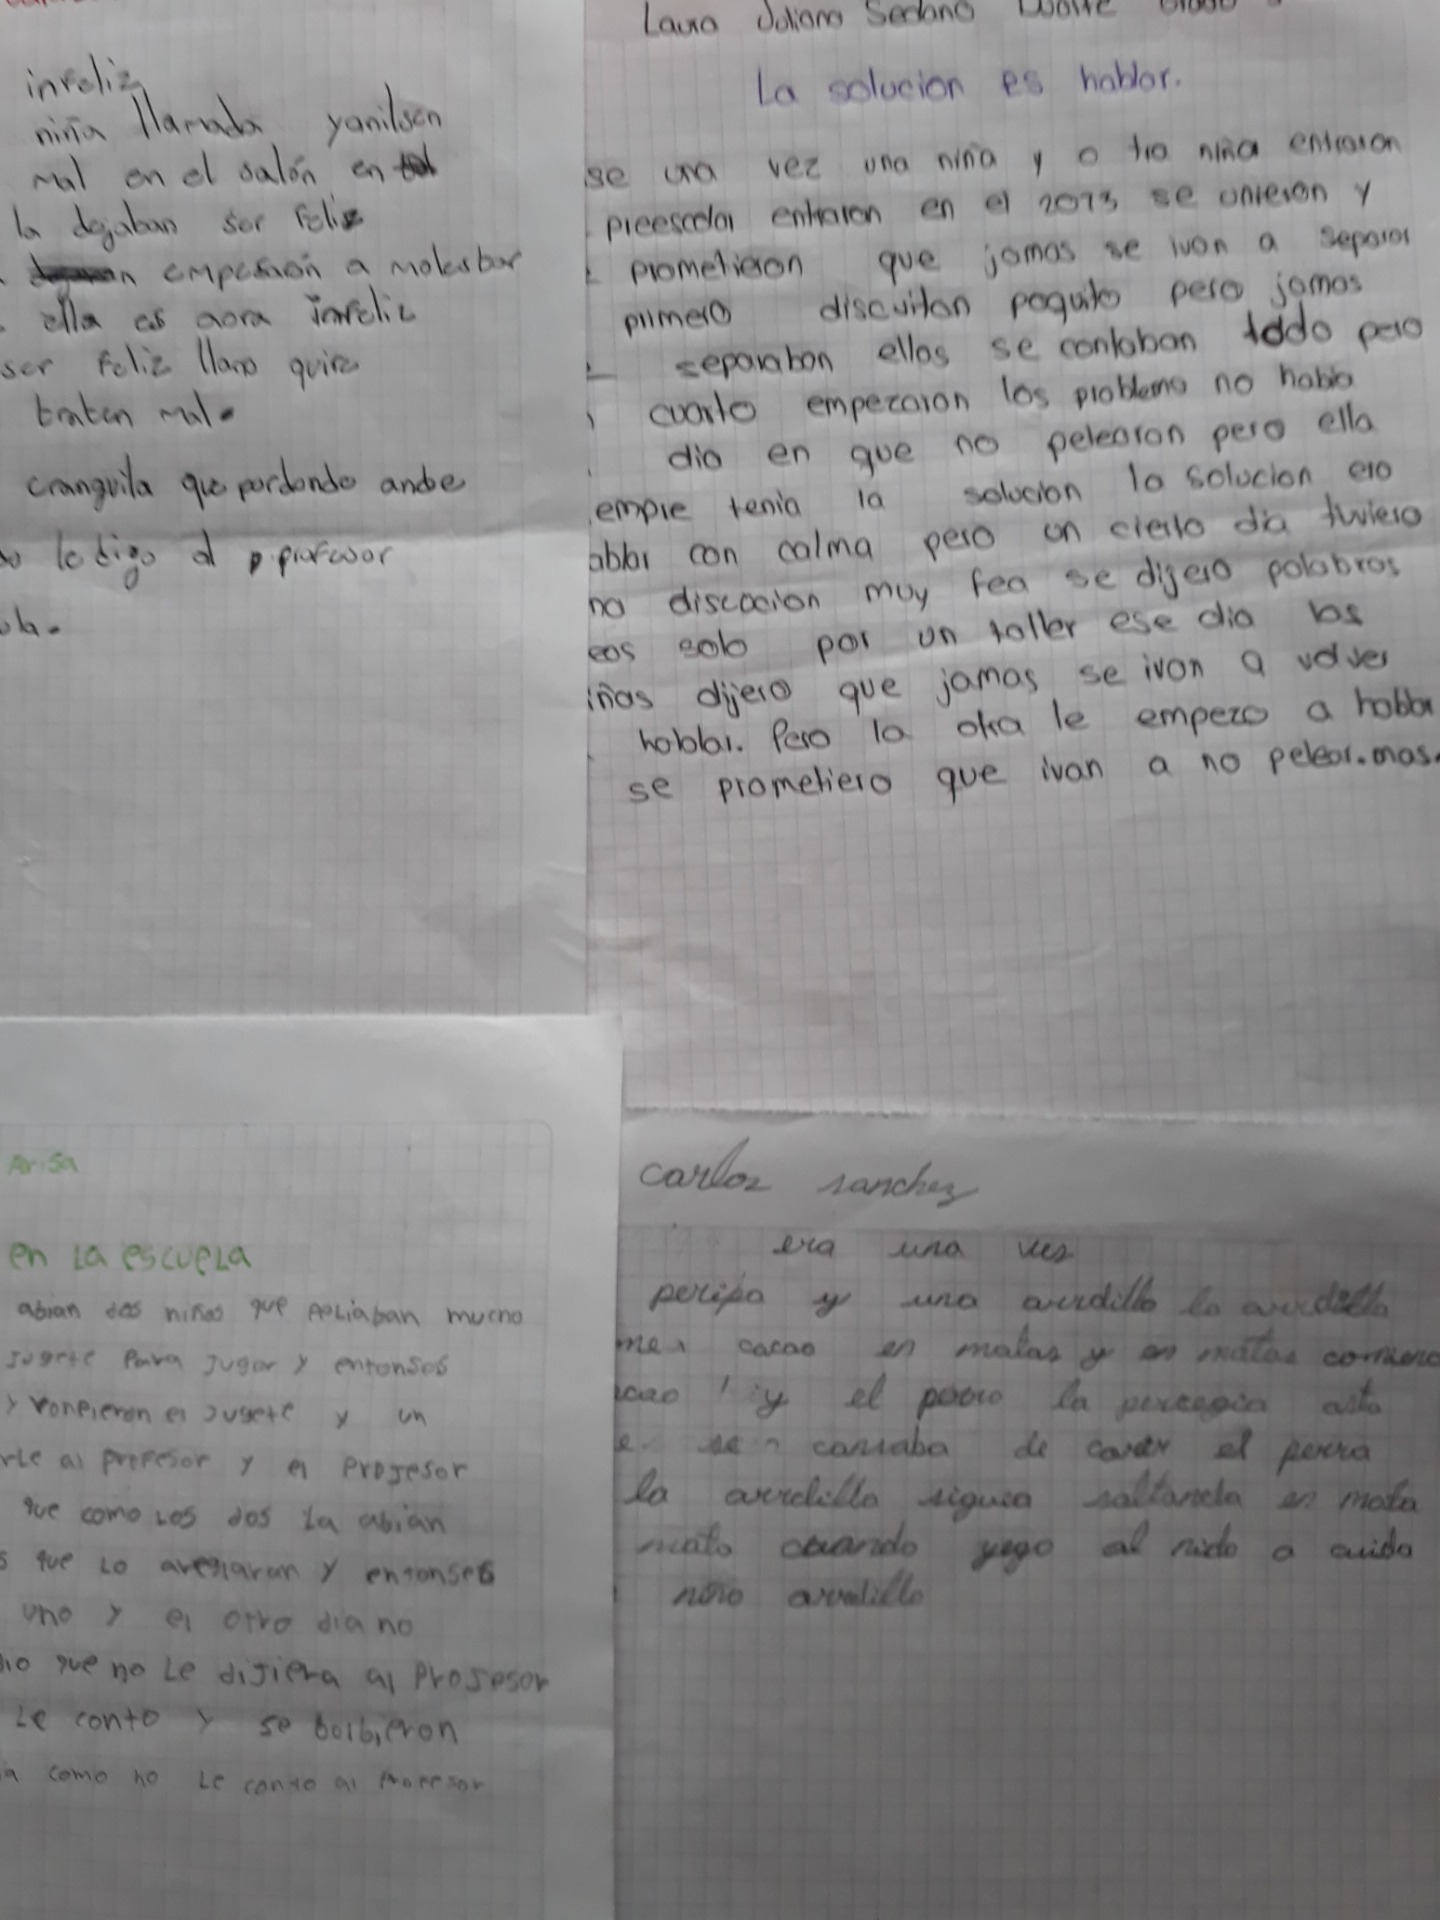 infeliz
niña llamada yanilsen
mal en el salón en
la dejaban ser feliz
empesaron a molestar
ella es aora infeliz
ser feliz llano quire
traten mal.
cranquila que pordondo ande
lo digo al profesor
Laura Juliana Sedano Duarte Grado
La solucion es hablar.
se una vez una niña y o tra niña entraron
preescolar entraron en el 2013 se unieron y
prometieron que jamas se ivan a separar
primero discutian poquito pero jamas
separaban ellas se contaban todo pero
cuarto empezaron los problema no habia
dia en que no pelearan pero ella
empre tenia la solucion la solucion era
ablar con calma pero un cierto dia tuviero
na discocion muy fea se dijero palabras
eas solo por un taller ese dia las
iñas dijero que jamas se ivan a volver
hablar. Pero la otra le empezo a hablar
se prometiero que ivan a no pelear.mas.
Arisa
en La escueLa
abian dos niños que peliaban mucho
jugete Para Jugar y entonses
y ronpieron el Jugete y un
rle al profesor y el Profesor
que como Los dos La abian
s que Lo areglaran y entonses
uno y el otro dia no
dio que no Le dijiera al Profesor
Le conto y se bolbieron
a como no Le conto al Profesor
carloz sanchez
era una ves
peripa y una ardilla la
mer cacao en matas y en matas comiend
cao y el perro la
cansaba de el perra
la siguea saltanda en mata
mata cuando yego al nido a
niño